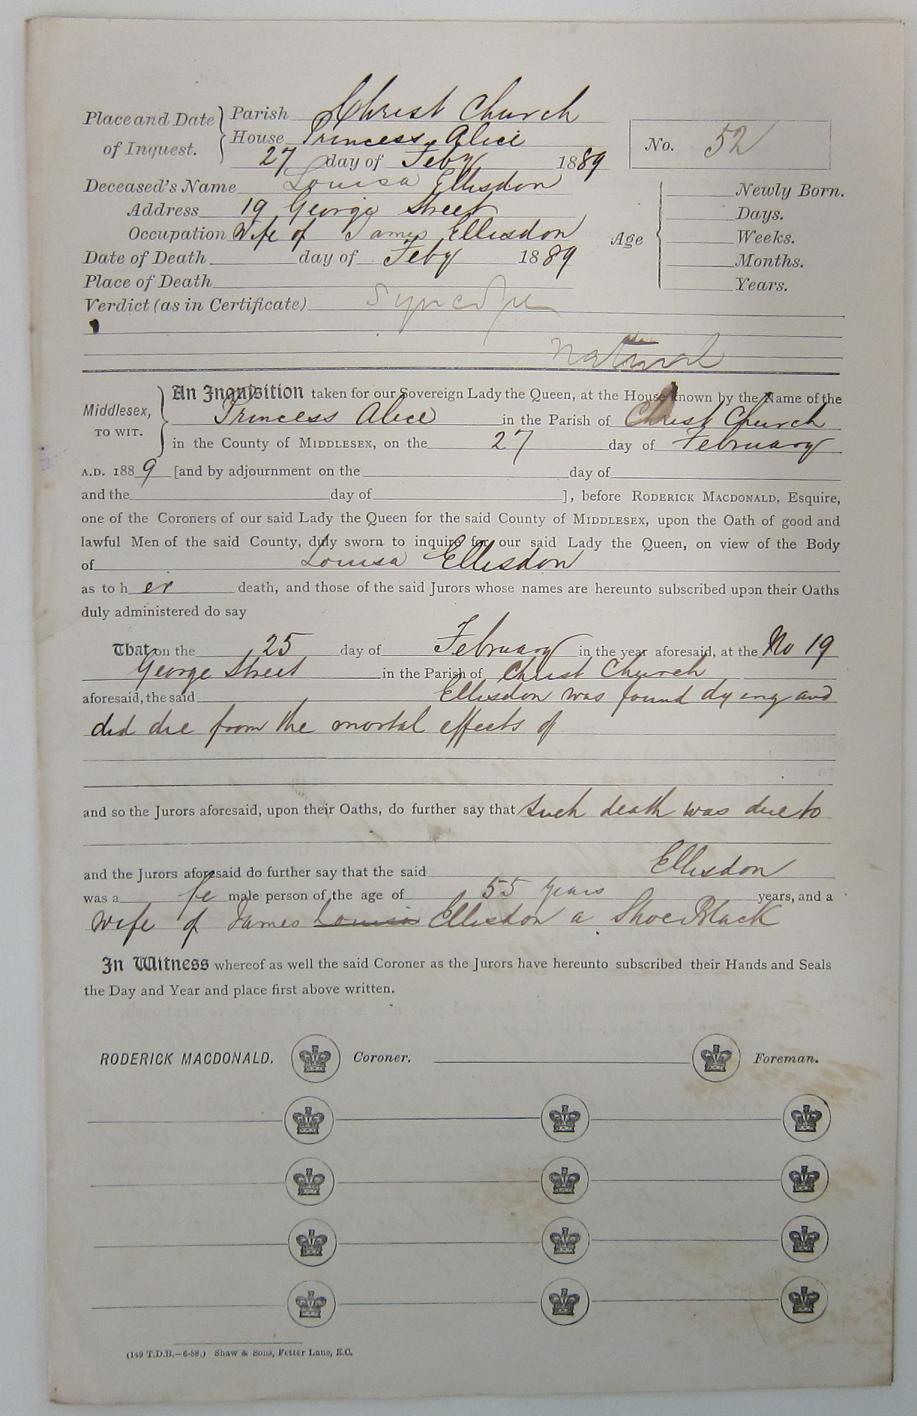 Place and Date of Inquest. Parish Christ Church
House Princess Alice
27 day of Feby 1889
No. 52
Deceased's Name Louisa Ellisdon
Address 19 George Street
Occupation Wife of James Ellisdon
Date of Death day of Feby 1889
Place of Death
Verdict (as in Certificate) Syncope
Natural
Age
Newly Born.
Days.
Weeks.
Months.
Years.
Middlesex,
TO WIT.
An Inquisition taken for our Sovereign Lady the Queen, at the House known by the Name of the
Princess Alice in the Parish of Christ Church
in the County of MIDDLESEX, on the 27 day of February
A.D. 1889 [and by adjournment on the day of
and the day of ], before RODERICK MACDONALD, Esquire,
one of the Coroners of our said Lady the Queen for the said County of MIDDLESEX, upon the Oath of good and
lawful Men of the said County, duly sworn to inquire for our said Lady the Queen, on view of the Body
of Louisa Ellisdon
as to her death, and those of the said Jurors whose names are hereunto subscribed upon their Oaths
duly administered do say
That on the 25 day of February in the year aforesaid, at the No 19
George Street in the Parish of Christ Church
aforesaid, the said Ellisdon was found dying and
did die from the mortal effects of
and so the Jurors aforesaid, upon their Oaths, do further say that such death was due to
and the Jurors aforesaid do further say that the said Ellisdon
was a fe male person of the age of 55 years years, and a
wife of James Louisa Ellisdon a Shoe Black
In Witness whereof as well the said Coroner as the Jurors have hereunto subscribed their Hands and Seals
the Day and Year and place first above written.
RODERICK MACDONALD. Coroner. Foreman.
(149 T.D.B.—6-88.) Shaw & Sons, Fetter Lane, E.C.